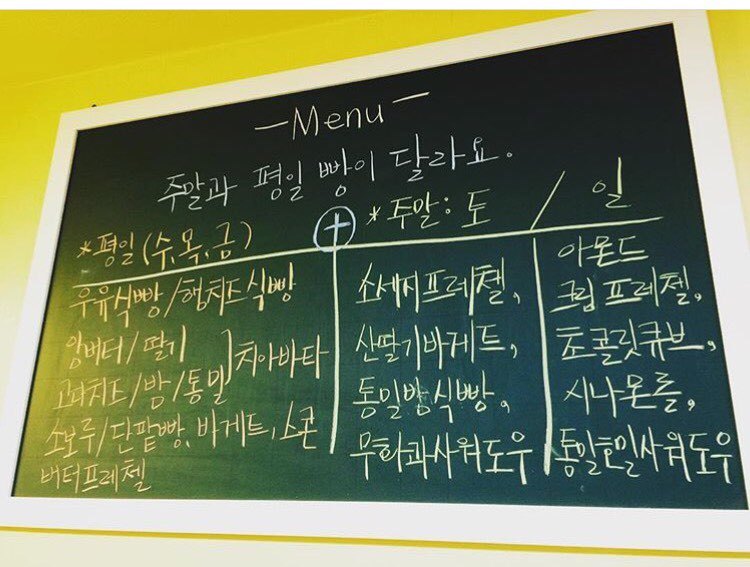 — Menu —
주말과 평일 빵이 달라요.
*평일 (수,목,금)
우유식빵/햄치즈식빵
앙버터/딸기
고려치즈/밤/통밀 ] 치아바타
소보루/단팥빵, 바게트, 스콘
버터프레첼
+
*주말: 토 / 일
소세지프레첼,
산딸기바게트,
통밀밤식빵,
무화과사워도우
아몬드
크림프레첼,
초콜릿큐브,
시나몬롤,
통밀호밀사워도우